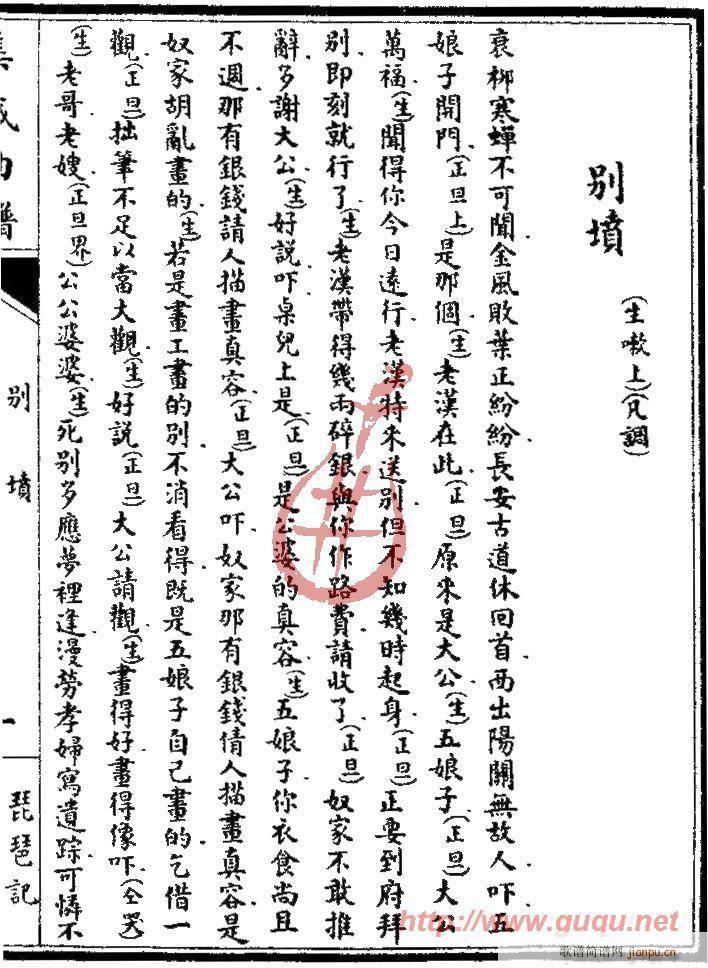 別墳
(生嗽上)(凡調)
衰柳寒蟬不可聞金風敗葉正紛紛長安古道休回首西出陽關無故人吓五
娘子開門(正旦上)是那個(生)老漢在此(正旦)原来是大公(生)五娘子(正旦)大公
萬福(生)聞得你今日遠行老漢特来送別但不知幾時起身(正旦)正要到府拜
別即刻就行了(生)老漢帶得幾兩碎銀與你作路費請收了(正旦)奴家不敢推
辭多謝大公(生)好説吓桌兒上是(正旦)是公婆的真容(生)五娘子你衣食尚且
不週那有銀錢請人描畫真容(正旦)大公吓奴家那有銀錢倩人描畫真容是
奴家胡亂畫的(生)若是畫工畫的別不消看得既是五娘子自己畫的乞借一
觀(正旦)拙筆不足以當大觀(生)好説(正旦)大公請觀(生)畫得好畫得像吓(仝哭)
(生)老哥老嫂(正旦界)公公婆婆(生)死別多應夢裡逢漫勞孝婦寫遺踪可憐不
集成曲譜
別墳
一
琵琶記
http://www.guqu.net
歌谱简谱网
jianpu.cn